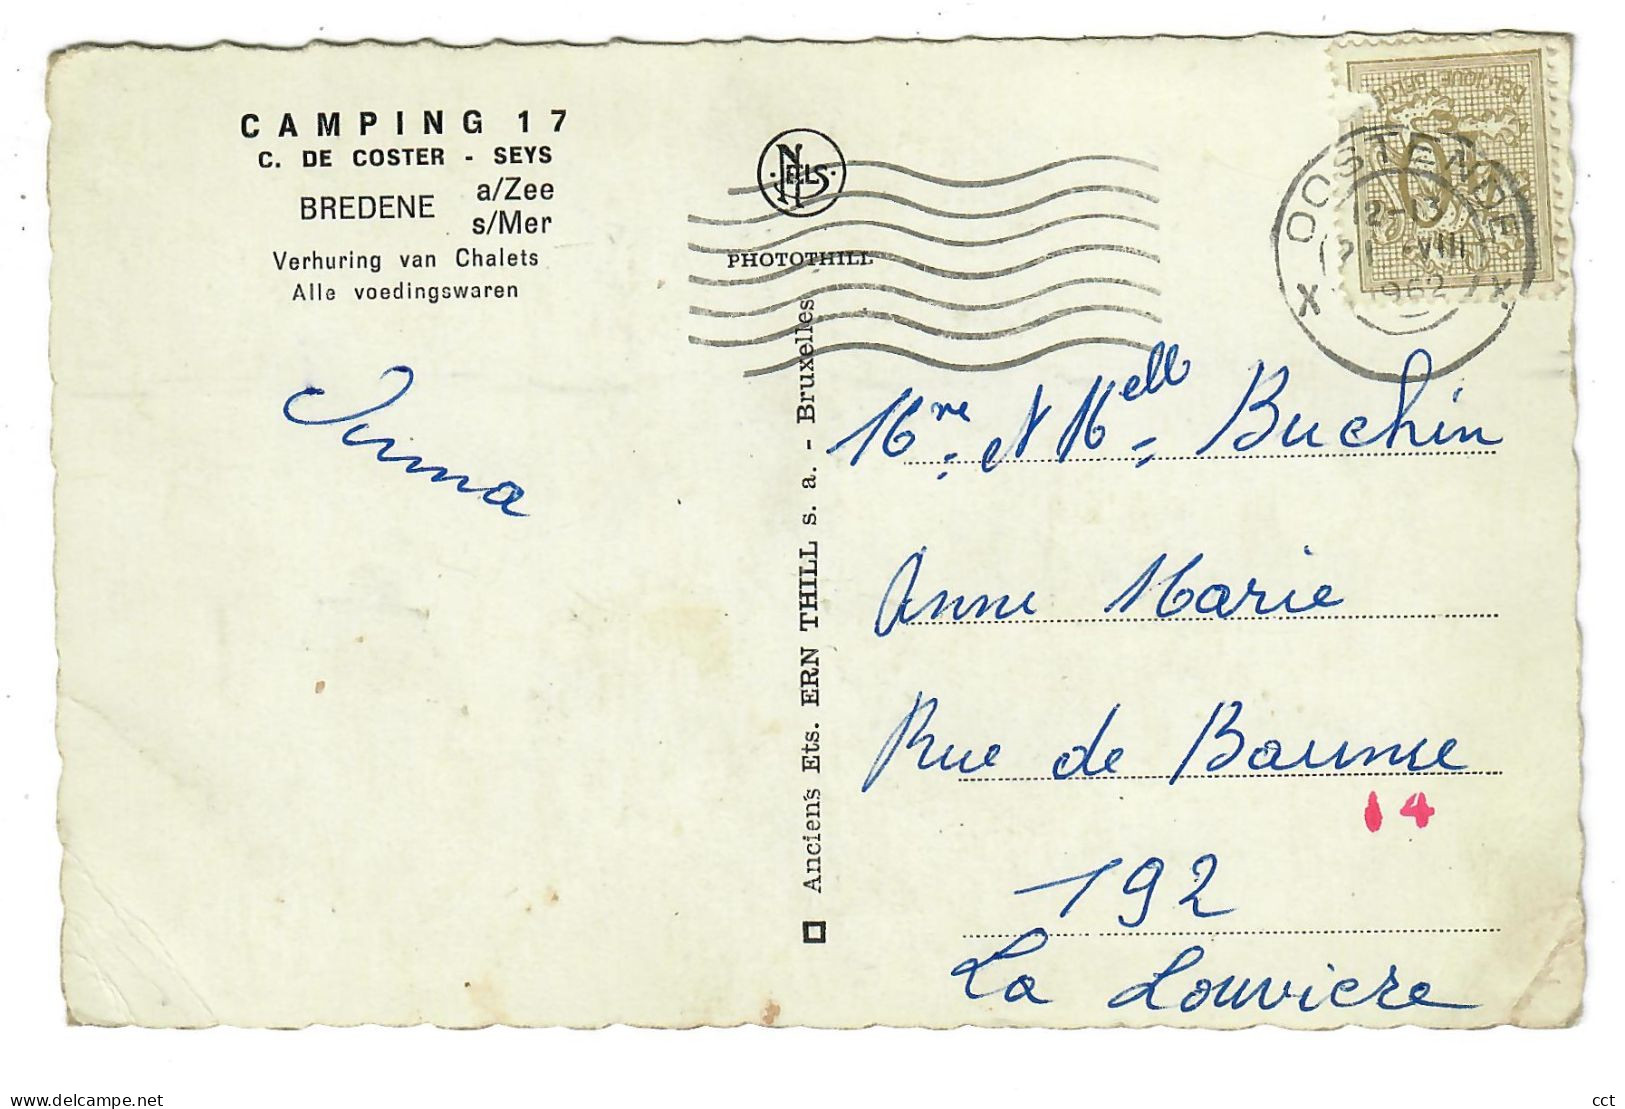 CAMPING 17
C. DE COSTER - SEYS
BREDENE a/Zee
s/Mer
Verhuring van Chalets
Alle voedingswaren
NELS
PHOTOTHILL
Anciens Ets. ERN THILL s. a. - Bruxelles
BELGIQUE BELGIE
OOSTENDE
12-13
VIII
1962
X X
Mme et Melle Buchin
Anne Marie
Rue de Baume
14
192
La Louviere
delcampe.net
cct